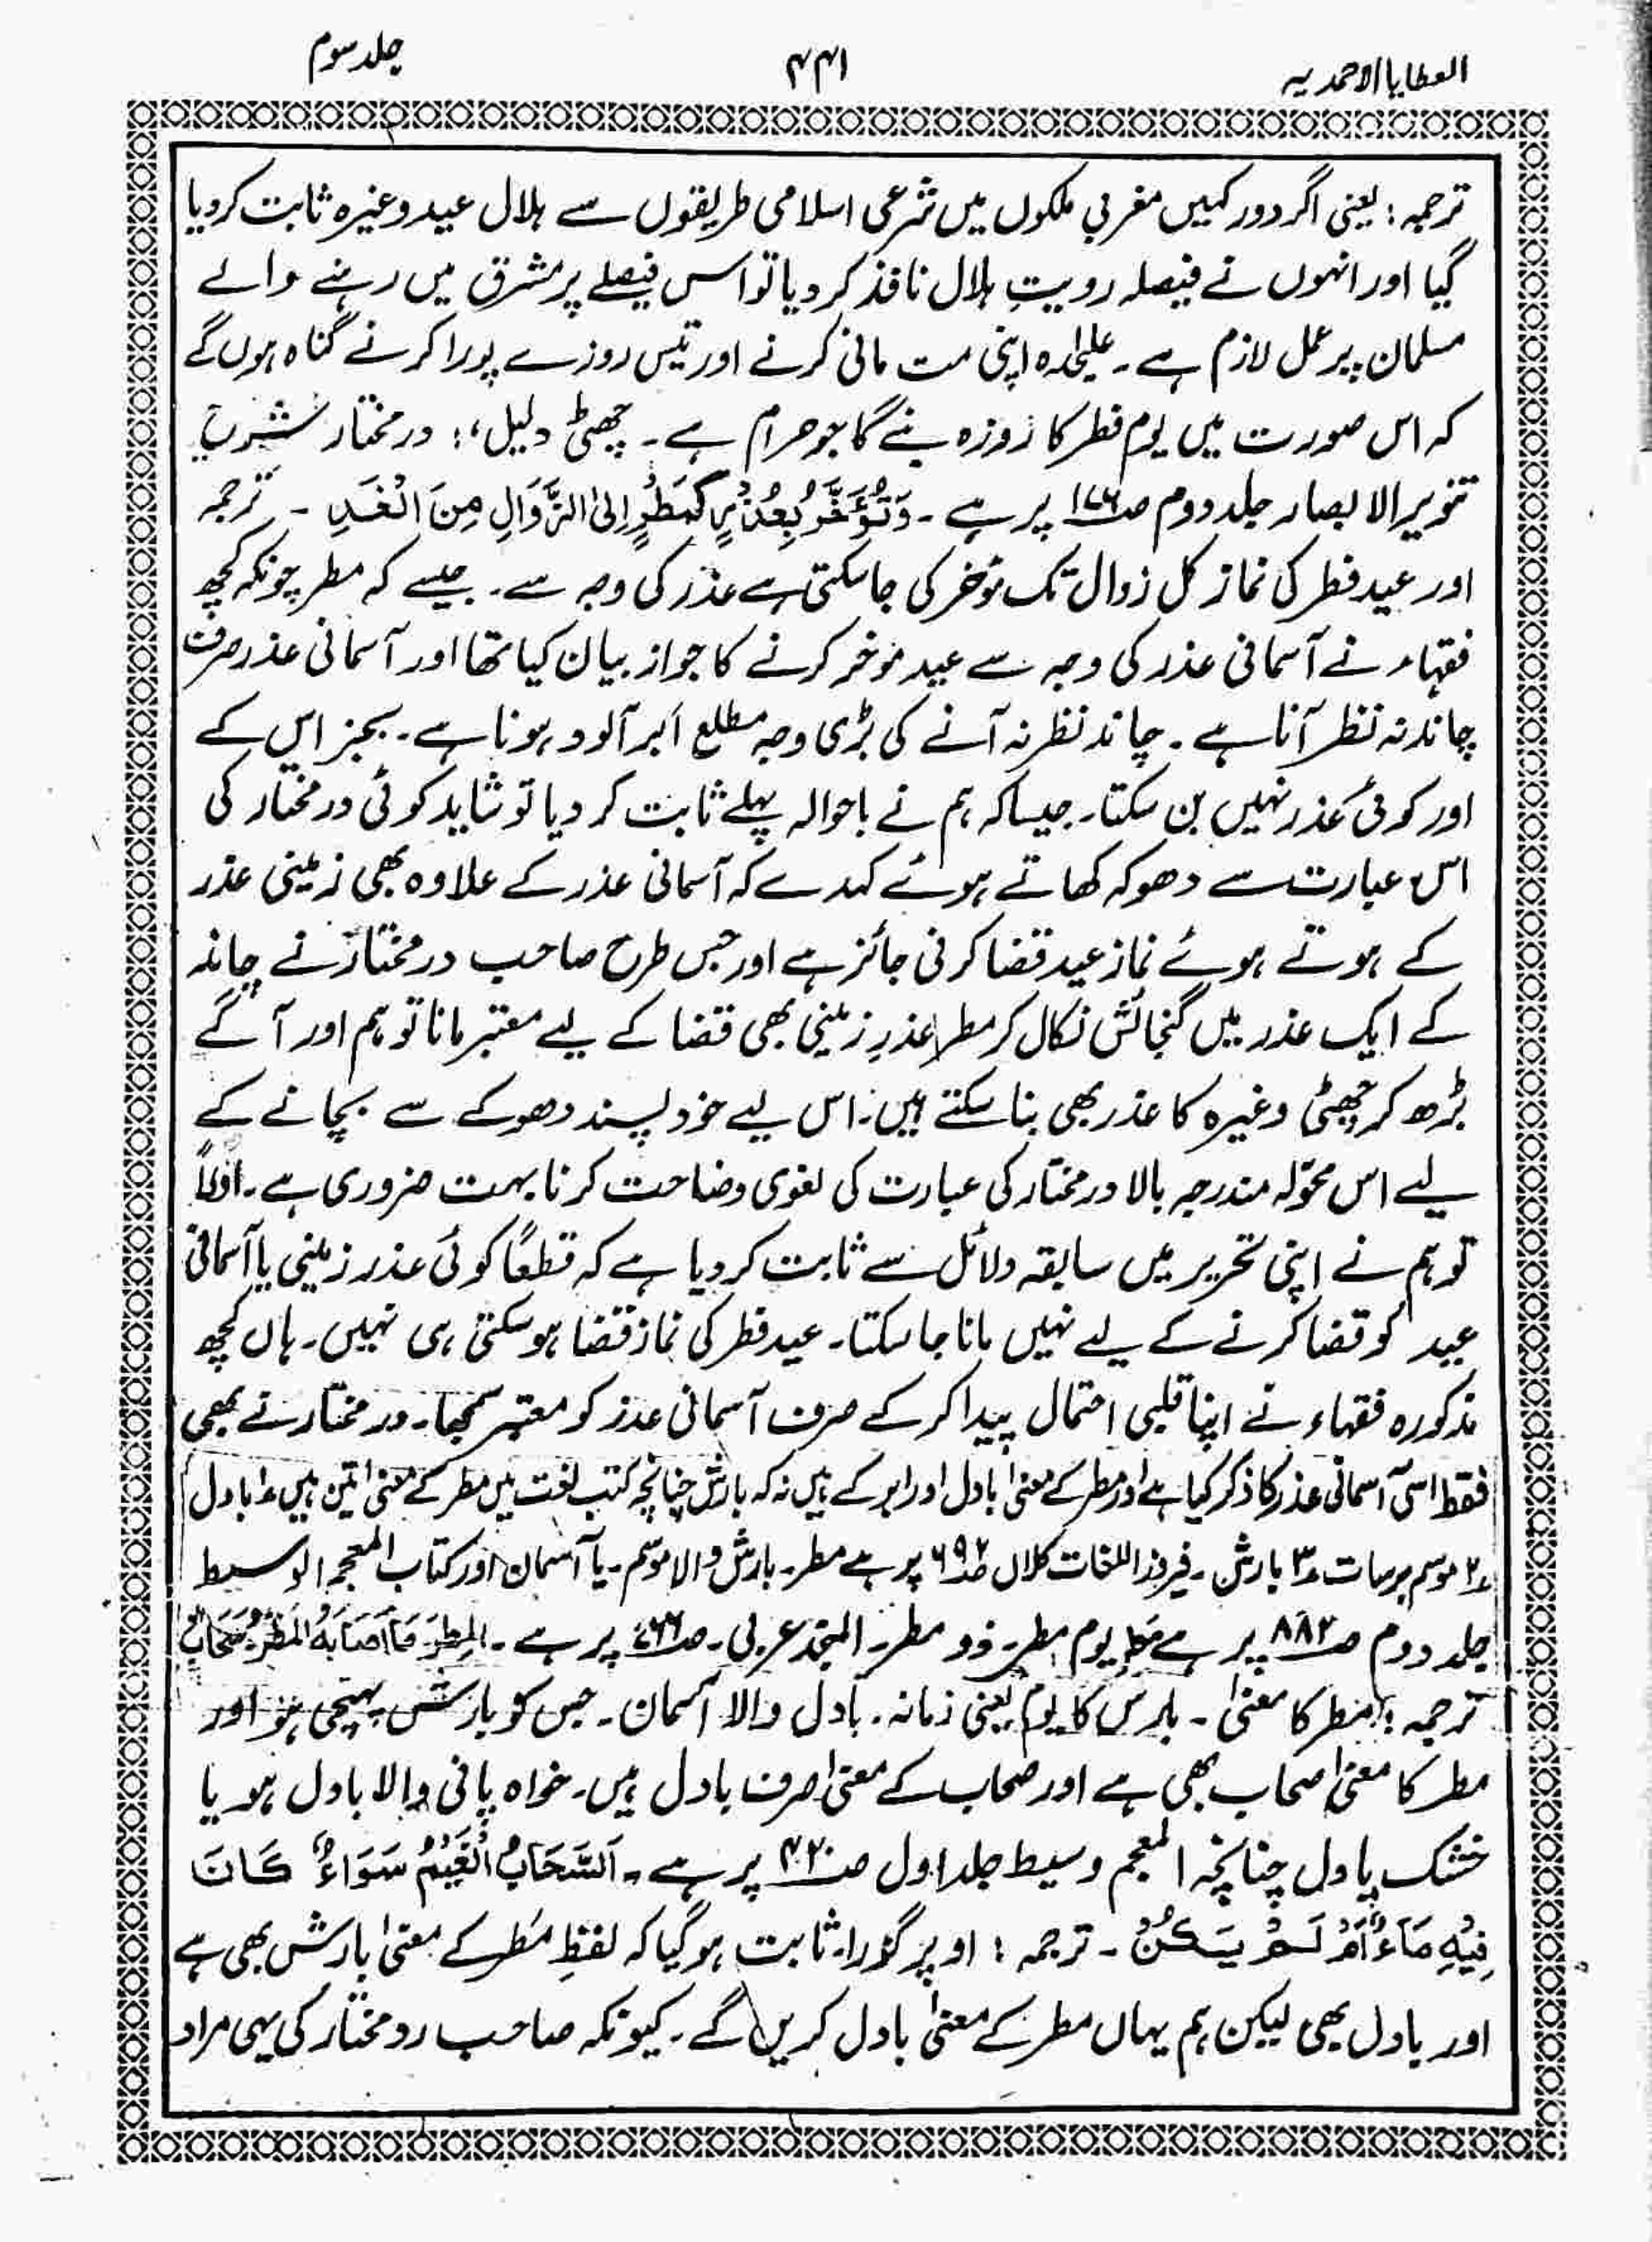 العطایا الاحمدیہ
۴۴۱
جلد سوم
ترجمہ: یعنی اگر دور کہیں مغربی ملکوں میں شرعی اسلامی طریقوں سے ہلال عید وغیرہ ثابت کر دیا
گیا اور انہوں نے فیصلہ رویتِ ہلال نافذ کر دیا تو اس فیصلے پر مشرق میں رہنے والے
مسلمان پر عمل لازم ہے۔ علیحدہ اپنی من مانی کرنے اور تیس روزے پورا کرنے گناہ ہوں گے
کہ اس صورت میں یوم فطر کا روزہ بنے گا جو حرام ہے۔ چھٹی دلیل: درمختار شرح
تنویر الابصار جلد دوم صـ۱۷۶ پر ہے۔ وَتُؤَخَّرُ بِعُذْرٍ كَمَطَرٍ اِلَى الزَّوَالِ مِنَ الْغَدِ۔ ترجمہ
اور عید فطر کی نماز کل زوال تک مؤخر کی جا سکتی ہے عذر کی وجہ سے۔ جیسے کہ مطر چونکہ کچھ
فقہاء نے آسمانی عذر کی وجہ سے عید مؤخر کرنے کا جواز بیان کیا تھا اور آسمانی عذر صرف
چاند نہ نظر آنا ہے۔ چاند نظر نہ آنے کی بڑی وجہ مطلع اَبر آلود ہونا ہے۔ بجز اس کے
اور کوئی عذر نہیں بن سکتا۔ جیسا کہ ہم نے باحوالہ پہلے ثابت کر دیا تو شاید کوئی درمختار کی
اس عبارت سے دھوکہ کھاتے ہوئے کہدے کہ آسمانی عذر کے علاوہ بھی زمینی عذر
کے ہوتے ہوئے نماز عید قضا کرنی جائز ہے اور جس طرح صاحب درمختار نے چاند
کے ایک عذر میں گنجائش نکال کر مطر عذرِ زمینی بھی قضا کے لیے معتبر مانا تو ہم اور آگے
بڑھ کر چھٹی وغیرہ کا عذر بھی بنا سکتے ہیں۔ اس لیے خود پسند دھوکے سے بچانے کے
لیے اس محوّلہ مندرجہ بالا درمختار کی عبارت کی لغوی وضاحت کرنا بہت ضروری ہے۔ اولاً
تو ہم نے اپنی تحریر میں سابقہ دلائل سے ثابت کر دیا ہے کہ قطعاً کوئی عذر زمینی یا آسمانی
عید کو قضا کرنے کے لیے نہیں مانا جا سکتا۔ عید فطر کی نماز قضا ہو سکتی ہی نہیں۔ ہاں کچھ
مذکورہ فقہاء نے اپنا قلبی احتمال پیدا کر کے صرف آسمانی عذر کو معتبر سمجھا۔ درمختار نے بھی
فقط اسی آسمانی عذر کا ذکر کیا ہے اور مطر کے معنیٰ بادل اور ابر کے ہیں نہ کہ بارش چنانچہ کتب لغت میں مطر کے معنیٰ تین ہیں ۱ بادل
۲ موسم برسات ۳ بارش۔ فیروز اللغات کلاں صـ۶۹۲ پر ہے مطر۔ بارش والا موسم۔ یا آسمان اور کتاب المعجم الوسیط
جلد دوم صـ۸۸۲ پر ہے یوم مطر۔ ذو مطر۔ المنجد عربی۔ صـ۷۶۶ پر ہے۔ المطر مَا اَصَابَهُ الْمَطَرُ صَحَابٌ
ترجمہ: مطر کا معنیٰ۔ بارش کا یوم یعنی زمانہ۔ بادل والا آسمان۔ جس کو بارش پہنچی ہو اور
مطر کا معنیٰ صحاب بھی ہے اور صحاب کے معنیٰ صرف بادل ہیں۔ خواہ پانی والا بادل ہو یا
خشک بادل چنانچہ المعجم وسیط جلد اول صـ۴۲۰ پر ہے۔ اَلسَّحَابُ الْغَيْمُ سَوَاءٌ كَانَ
فِيْهِ مَاءٌ اَمْ لَمْ يَكُنْ۔ ترجمہ: اوپر گزرا۔ ثابت ہو گیا کہ لفظِ مَطَر کے معنیٰ بارش بھی ہے
اور بادل بھی لیکن ہم یہاں مطر کے معنیٰ بادل کریں گے۔ کیونکہ صاحب ردمختار کی یہی مراد